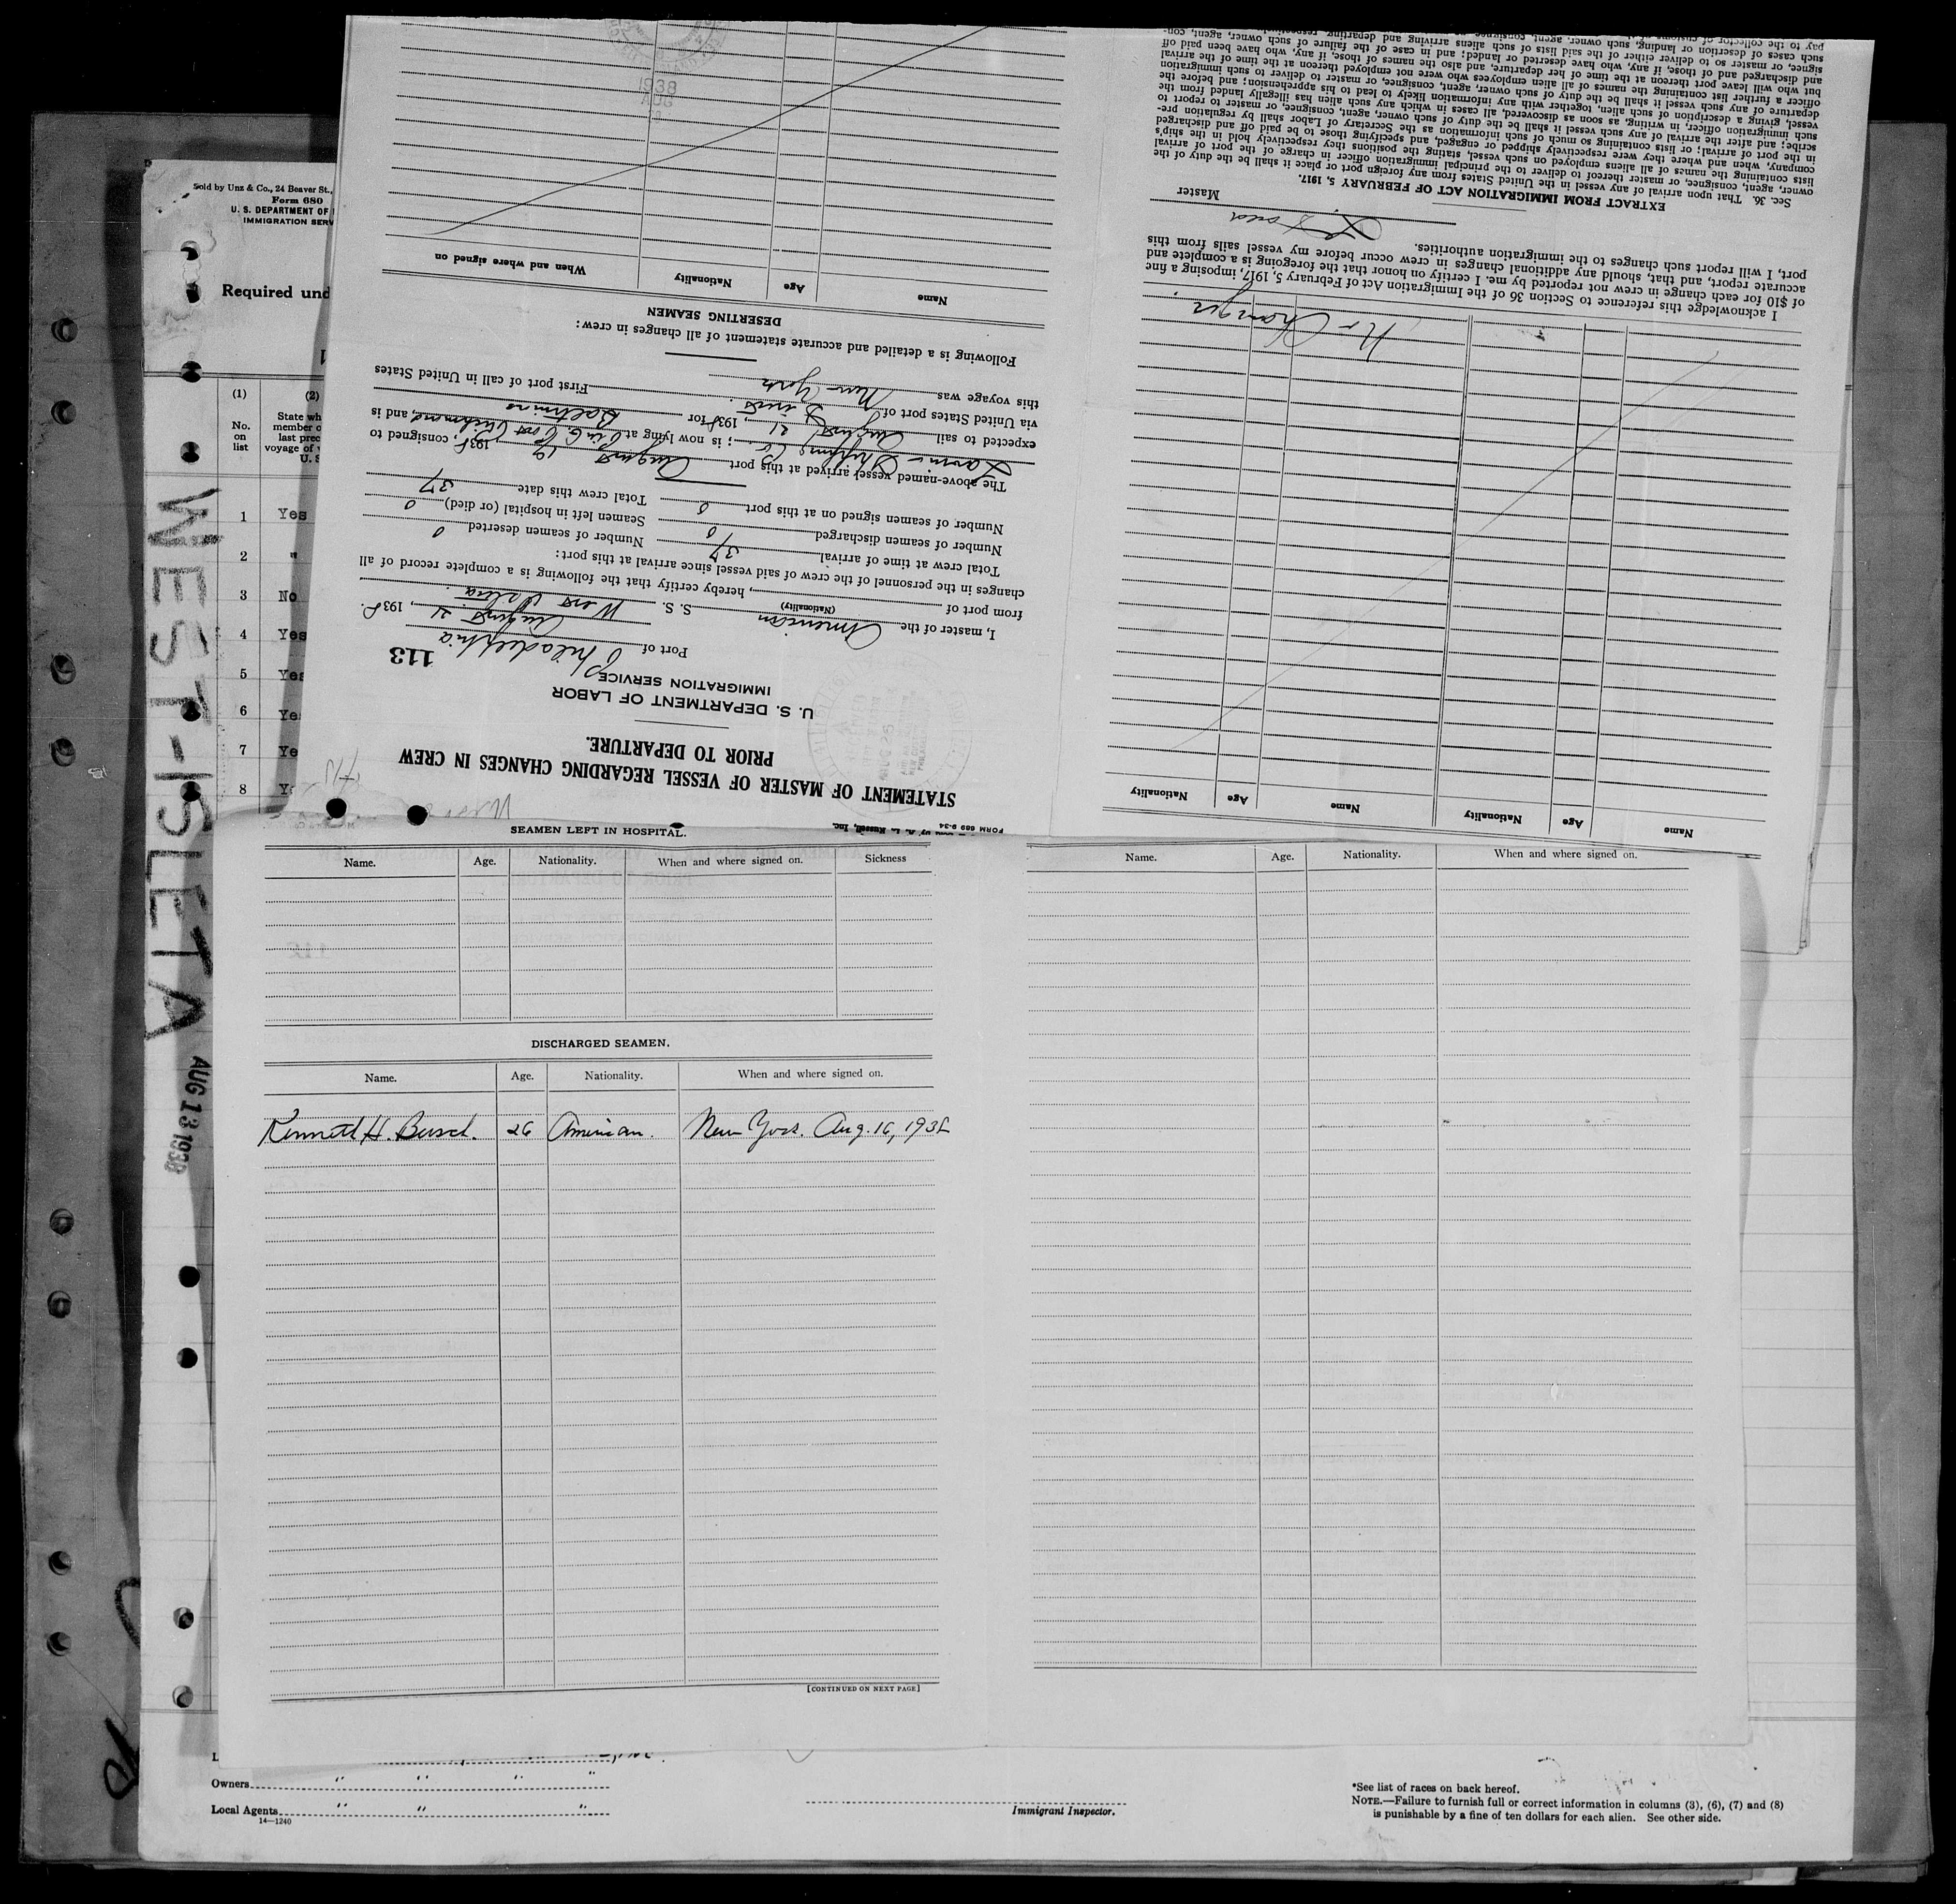 Sold by Unz & Co., 24 Beaver St.,
Form 680
U. S. DEPARTMENT OF
IMMIGRATION SERV
Required und
(1)
(2)
No.
on
list
State wh
member o
last prec
voyage of
U. S
1 Yes
2 "
3 No
4 Yes
5 Yes
6 Ye
7 Ye
8 Y
WEST-ISLETA
AUG 13 1938
FORM 689 9-34
STATEMENT OF MASTER OF VESSEL REGARDING CHANGES IN CREW
PRIOR TO DEPARTURE.
U. S. DEPARTMENT OF LABOR
IMMIGRATION SERVICE
113
Port of Philadelphia
August 21, 1938
I, master of the American S. S. West Isleta
(Nationality)
from port of , hereby certify that the following is a complete record of all
changes in the personnel of the crew of said vessel since arrival at this port:
Total crew at time of arrival 37 Number of seamen deserted 0
Number of seamen discharged 0 Seamen left in hospital (or died) 0
Number of seamen signed on at this port 0 Total crew this date 37
The above-named vessel arrived at this port August 19 1938, consigned to
Shipping Co ; is now lying at Port Richmond, and is
expected to sail August 21, 1938, for Baltimore
via United States port of Direct First port of call in United States
this voyage was New York
Following is a detailed and accurate statement of all changes in crew:
DESERTING SEAMEN
Name Age Nationality When and where signed on
1938
AUG
Name Age Nationality Name Age Nationality
No Changes
I acknowledge this reference to Section 36 of the Immigration Act of February 5, 1917, imposing a fine
of $10 for each change in crew not reported by me. I certify on honor that the foregoing is a complete and
accurate report, and that, should any additional changes in crew occur before my vessel sails from this
port, I will report such changes to the immigration authorities.
Master
EXTRACT FROM IMMIGRATION ACT OF FEBRUARY 5, 1917.
Sec. 36. That upon arrival of any vessel in the United States from any foreign port or place it shall be the duty of the
owner, agent, consignee, or master thereof to deliver to the principal immigration officer in charge of the port of arrival
lists containing the names of all aliens employed on such vessel, stating the positions they respectively hold in the ship's
company, when and where they were respectively shipped or engaged, and specifying those to be paid off and discharged
in the port of arrival; or lists containing so much of such information as the Secretary of Labor shall by regulation pre-
scribe; and after the arrival of any such vessel it shall be the duty of such owner, agent, consignee, or master to report to
such immigration officer, in writing, as soon as discovered, all cases in which any such alien has illegally landed from the
vessel, giving a description of such alien, together with any information likely to lead to his apprehension; and before the
departure of any such vessel it shall be the duty of such owner, agent, consignee, or master to deliver to such immigration
officer a further list containing the names of all alien employees who were not employed thereon at the time of the arrival
but who will leave port thereon at the time of her departure, and also the names of those, if any, who have been paid off
and discharged and of those, if any, who have deserted or landed; and in case of the failure of such owner, agent, con-
signee, or master so to deliver either of the said lists of such aliens arriving and departing
such cases of desertion or landing, such owner, agent, consignee
pay to the collector of customs of
SEAMEN LEFT IN HOSPITAL.
Name. Age. Nationality. When and where signed on. Sickness
DISCHARGED SEAMEN.
Name. Age. Nationality. When and where signed on.
Kenneth H. Busch. 26 American. New York. Aug. 16, 1938
[CONTINUED ON NEXT PAGE]
Name. Age. Nationality. When and where signed on.
Owners " " " "
Local Agents " " "
14—1240
Immigrant Inspector.
*See list of races on back hereof.
NOTE.—Failure to furnish full or correct information in columns (3), (6), (7) and (8)
is punishable by a fine of ten dollars for each alien. See other side.